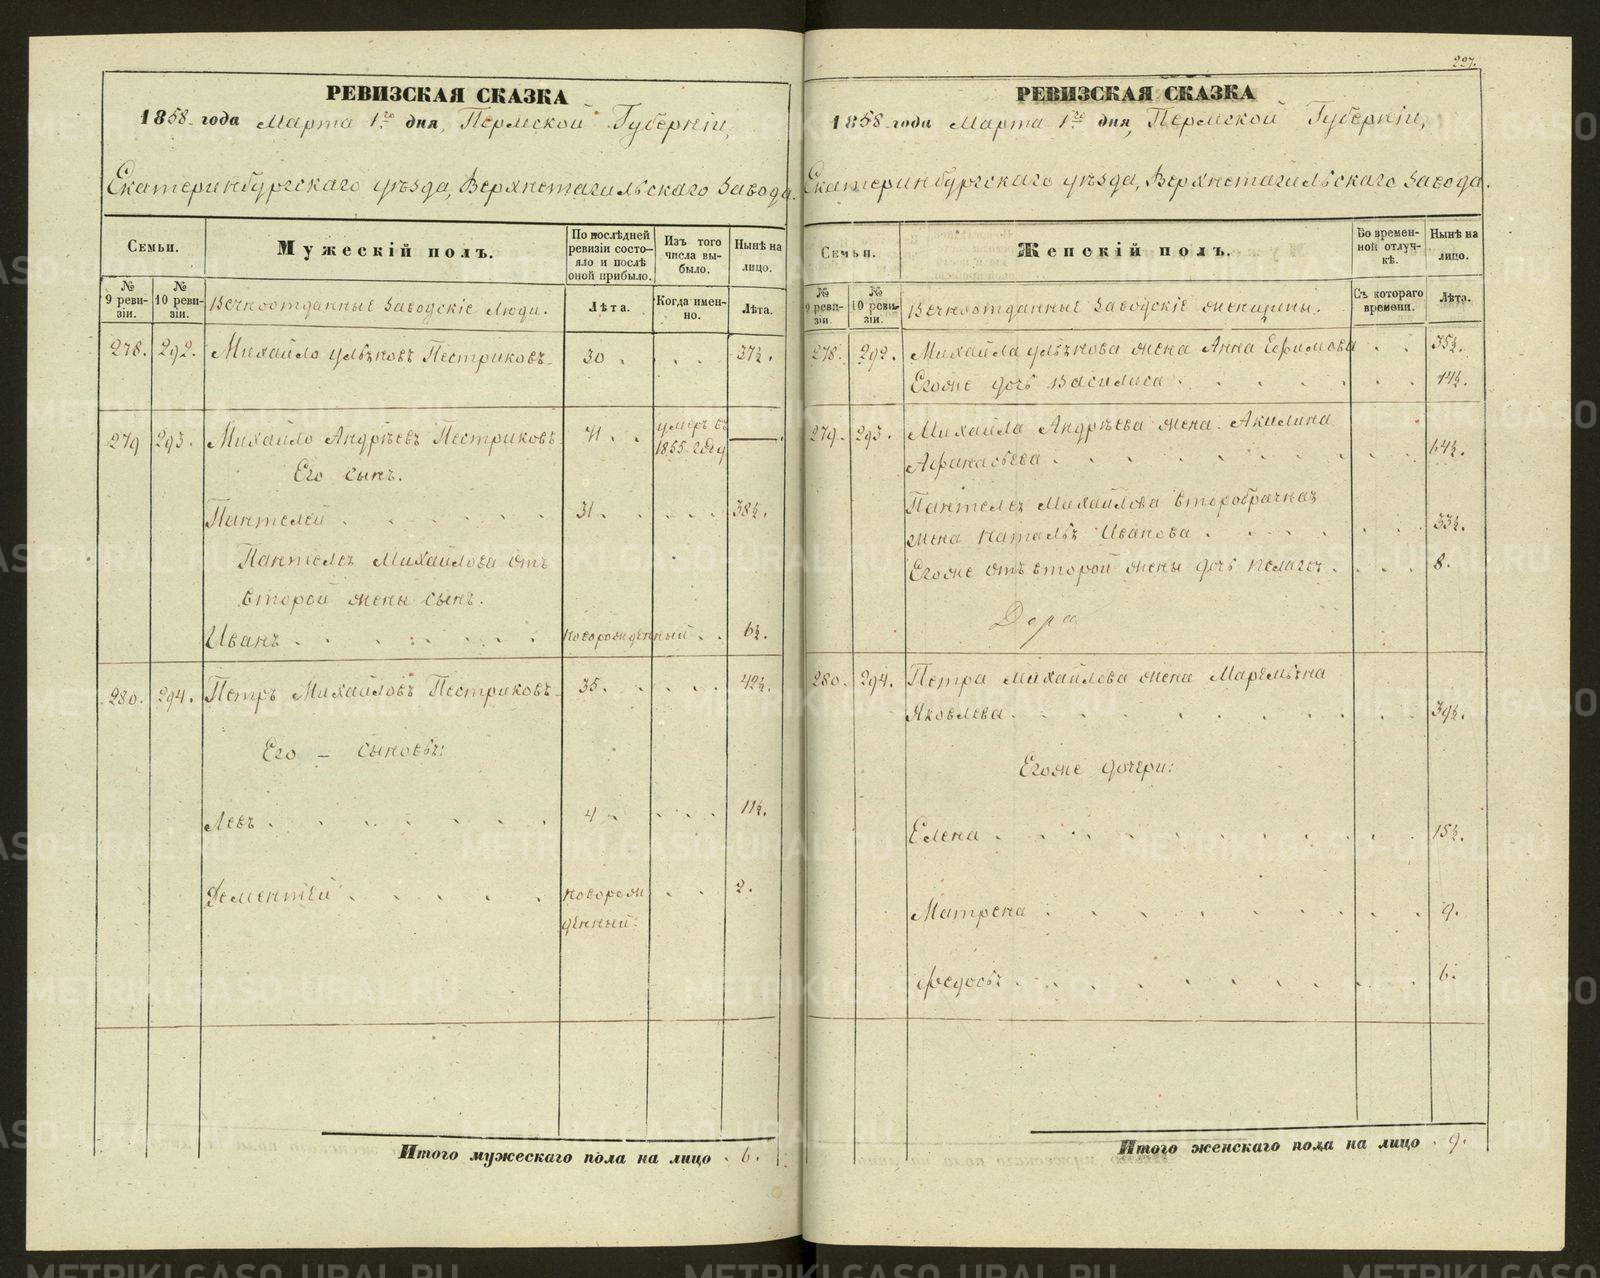 227.
РЕВИЗСКАЯ СКАЗКА
1858 года Марта 1го дня, Пермской Губерніи,
Екатеринбургскаго уѣзда, Верхнетагильскаго Завода.
Семьи.
Мужескій полъ.
По послѣдней ревизіи состояло и послѣ оной прибыло.
Изъ того числа выбыло.
Нынѣ на лицо.
№ 9 ревизіи.
№ 10 ревизіи.
Вечноотданные Заводскіе Люди.
Лѣта.
Когда именно.
Лѣта.
278. 292. Михайло Ульяновъ Пестриковъ 30 . . . 37½.
279 293. Михайло Андрѣевъ Пестриковъ 71 . . умеръ въ 1855 году —
Его сынъ.
Пантелей . . . . . . 31 . . . . 38½.
Пантелея Михайлова отъ
второй жены сынъ.
Иванъ . . . . . . новорожденный . . 6½.
280. 294. Петръ Михайловъ Пестриковъ 35 . . . . 42½.
Его — сыновья:
Левъ . . . . . . 4 . . . . 11½.
Дементій . . . . . новорож . . 2.
денный.
Итого мужескаго пола на лицо . 6.
РЕВИЗСКАЯ СКАЗКА
1858 года Марта 1го дня, Пермской Губерніи,
Екатеринбургскаго уѣзда, Верхнетагильскаго Завода.
Семьи.
Женскій полъ.
Во временной отлучкѣ.
Нынѣ на лицо.
№ 9 ревизіи.
№ 10 ревизіи.
Вечноотданные Заводскіе женщины.
Съ котораго времени.
Лѣта.
278. 292. Михайла Ульянова жена Анна Ефимова . . 35½.
Егоже дочь Василиса . . . . . . . 14½.
279. 293. Михайла Андрѣева жена Акилина
Афанасьева . . . . . . . . . 64½.
Пантелея Михайлова второбрачная
жена Наталья Иванова . . . . . . 33½.
Егоже отъ второй жены дочь Пелагея . . . . 8.
280. 294. Петра Михайлова жена Маремьяна
Яковлева . . . . . . . . . 39½.
Егоже дочери:
Елена . . . . . . . . . 15½.
Матрена . . . . . . . . . 9.
Федосья . . . . . . . . . 6.
Итого женскаго пола на лицо . 9.
METRIKI.GASO-URAL.RU